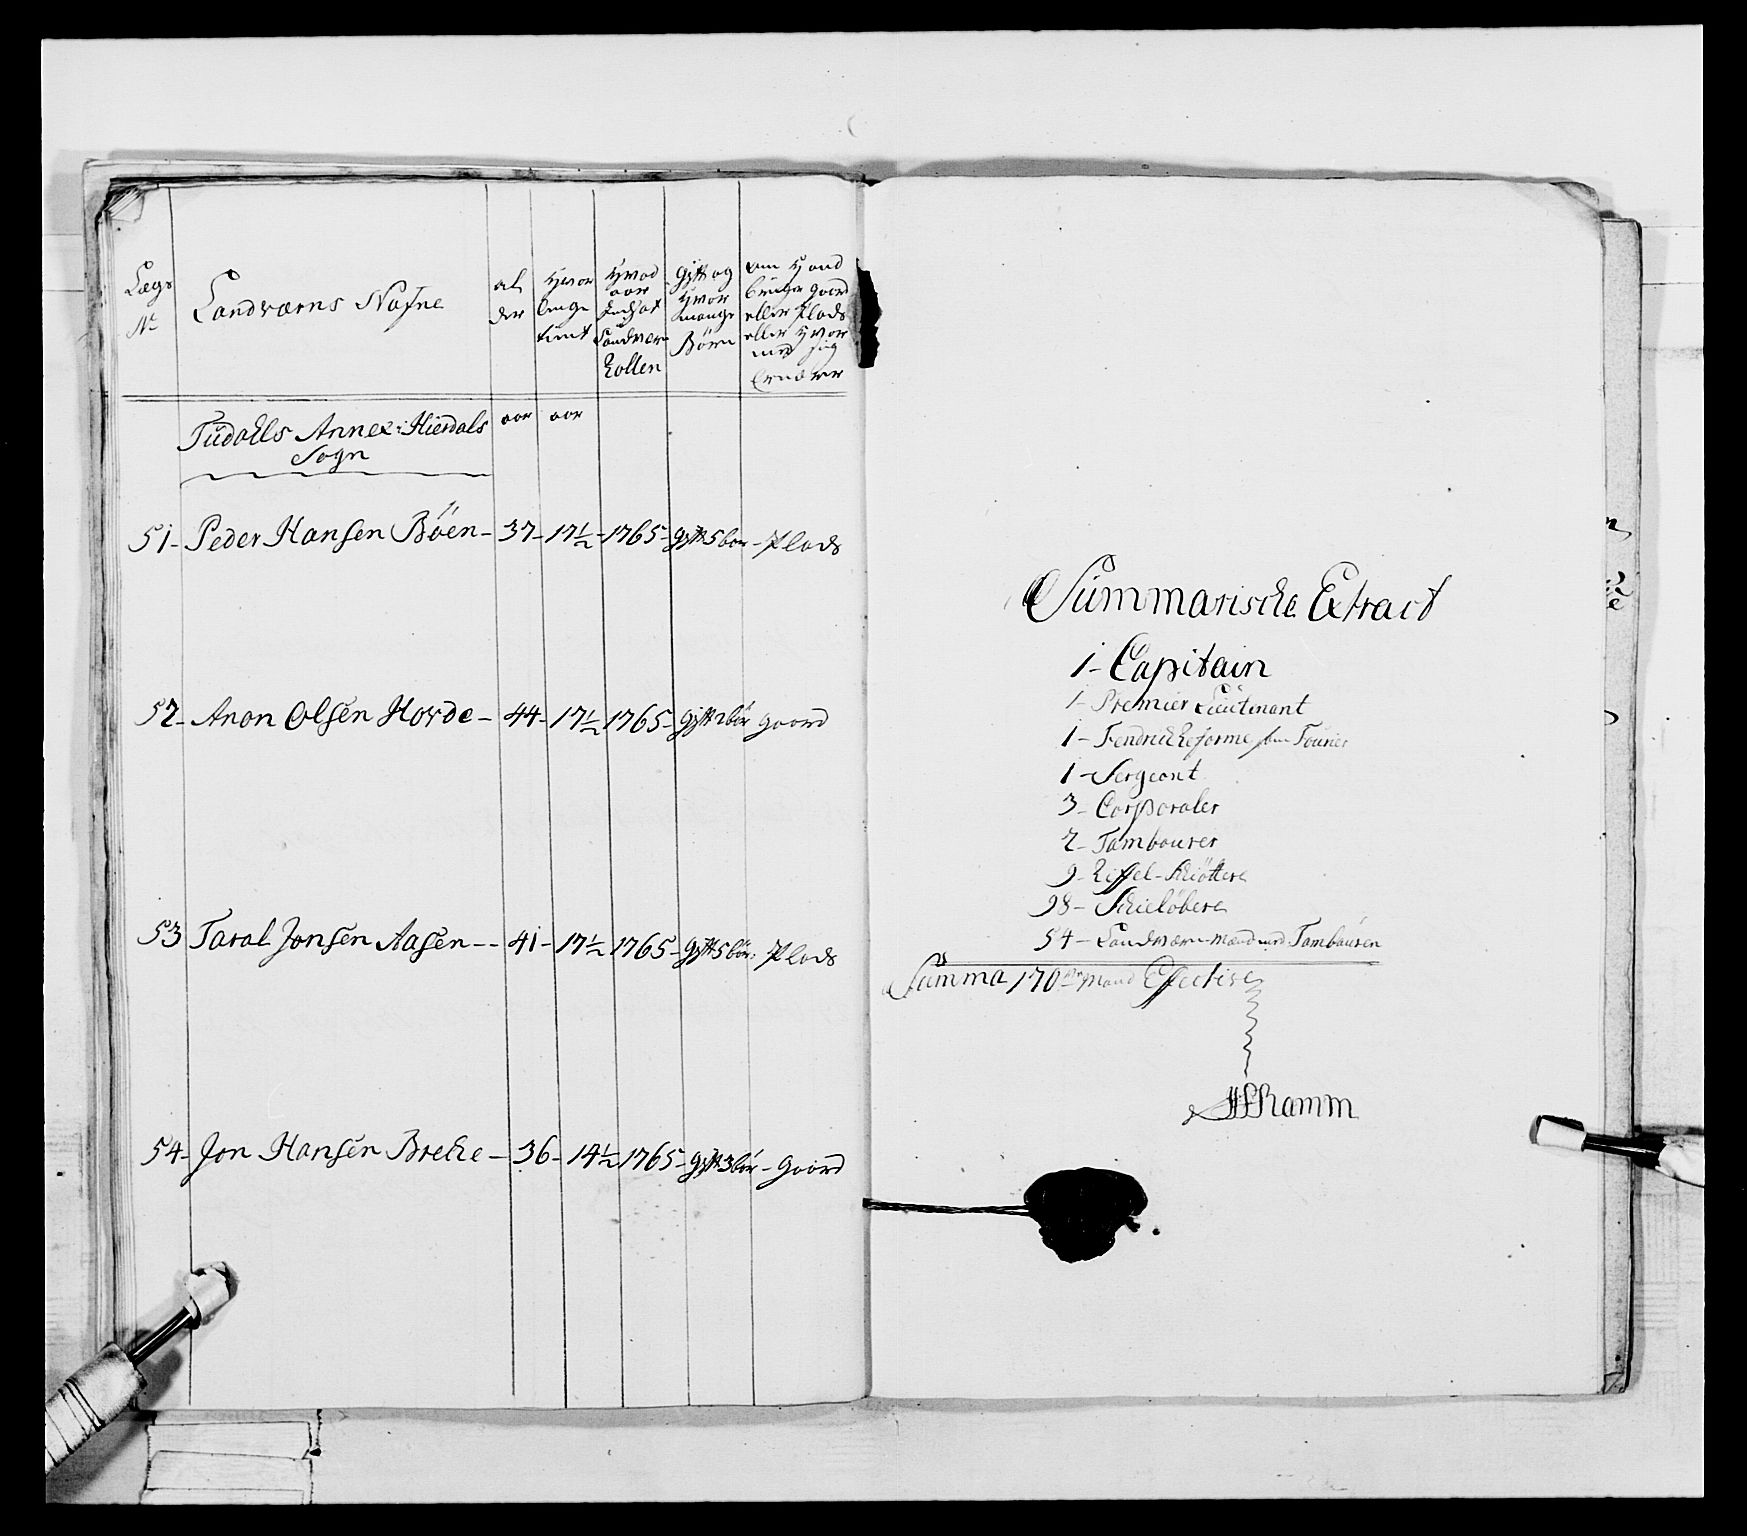 Lægs
No
Landværns Nafne
al
der
Hvor
lenge
tient
Hvad
aar
Indsat
Landværn
Rollen
Gift og
Hvor
mange
Börn
om Hand
bruger gaard
eller Plads
eller Hvor
med sig
Ernærer
Tüdalls Annex: Hierdals
Sogn
aar aar
51- Peder Hansen Böen- 37- 17½- 1765- gift 5 bör- Plads
52- Anon Olsen Hovde- 44- 17½ 1765- gift 2 bör gaard
53 Taral Jonsen Aasen-- 41- 17½ 1765- gift 5 bör- Plads
54- Jon Hansen Breche- 36- 14½ 1765- gift 3 bör- gaard
Summarische Extract
1- Capitain
1- Premier Lieutinant
1- Fendrich Reforme som Fourier
1- Sergeant
3- Corporaler
2- Tambourer
9- Riffel-Skiöttere
98- Skielöbere
54- Landværn-Mænd med Tambouren
Summa 170 Mand Effective
Ramm